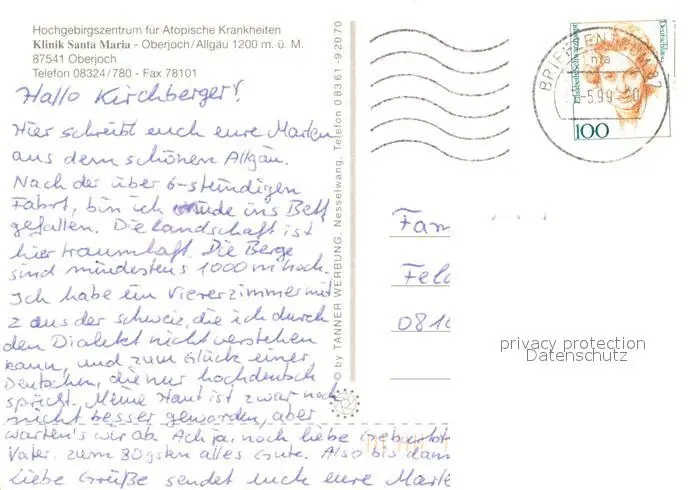 Hochgebirgszentrum für Atopische Krankheiten
Klinik Santa Maria - Oberjoch/Allgäu 1200 m. ü. M.
87541 Oberjoch
Telefon 08324/780 - Fax 78101
Hallo Kirchberger!
Hier schreibt euch eure Marlen
aus dem schönen Allgäu.
Nach der über 6-stündigen
Fahrt, bin ich müde ins Bett
gefallen. Die Landschaft ist
hier traumhaft. Die Berge
sind mindestens 1000 m hoch.
Ich habe ein Viererzimmer mit
2 aus der Schweiz, die ich durch
den Dialekt nicht verstehen
kann, und zum Glück einer
Deutschen, die nur hochdeutsch
spricht. Meine Haut ist zwar noch
nicht besser geworden, aber
warten's wir ab. Ach ja, noch liebe Geburtst
Vater. zum 80gsten alles Gute. Also bis dann
Liebe Grüße sendet euch eure Marle
© by TANNER WERBUNG. Nesselwang. Telefon 08361-92070
BRIEFZENTRUM 87
na
-5.99
Elisabeth Schwarzhaupt
Deutschland
100
Fam
Feld
0816
privacy protection
Datenschutz